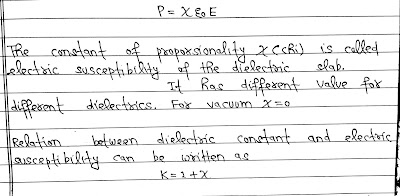 P = χ ε₀ E
The constant of proporsionality χ (chi) is called
electric susceptibility of the dielectric slab.
It has different value for
different dielectrics. For vacuum χ=0
Relation between dielectric constant and electric
susceptibility can be written as
K = 1 + χ